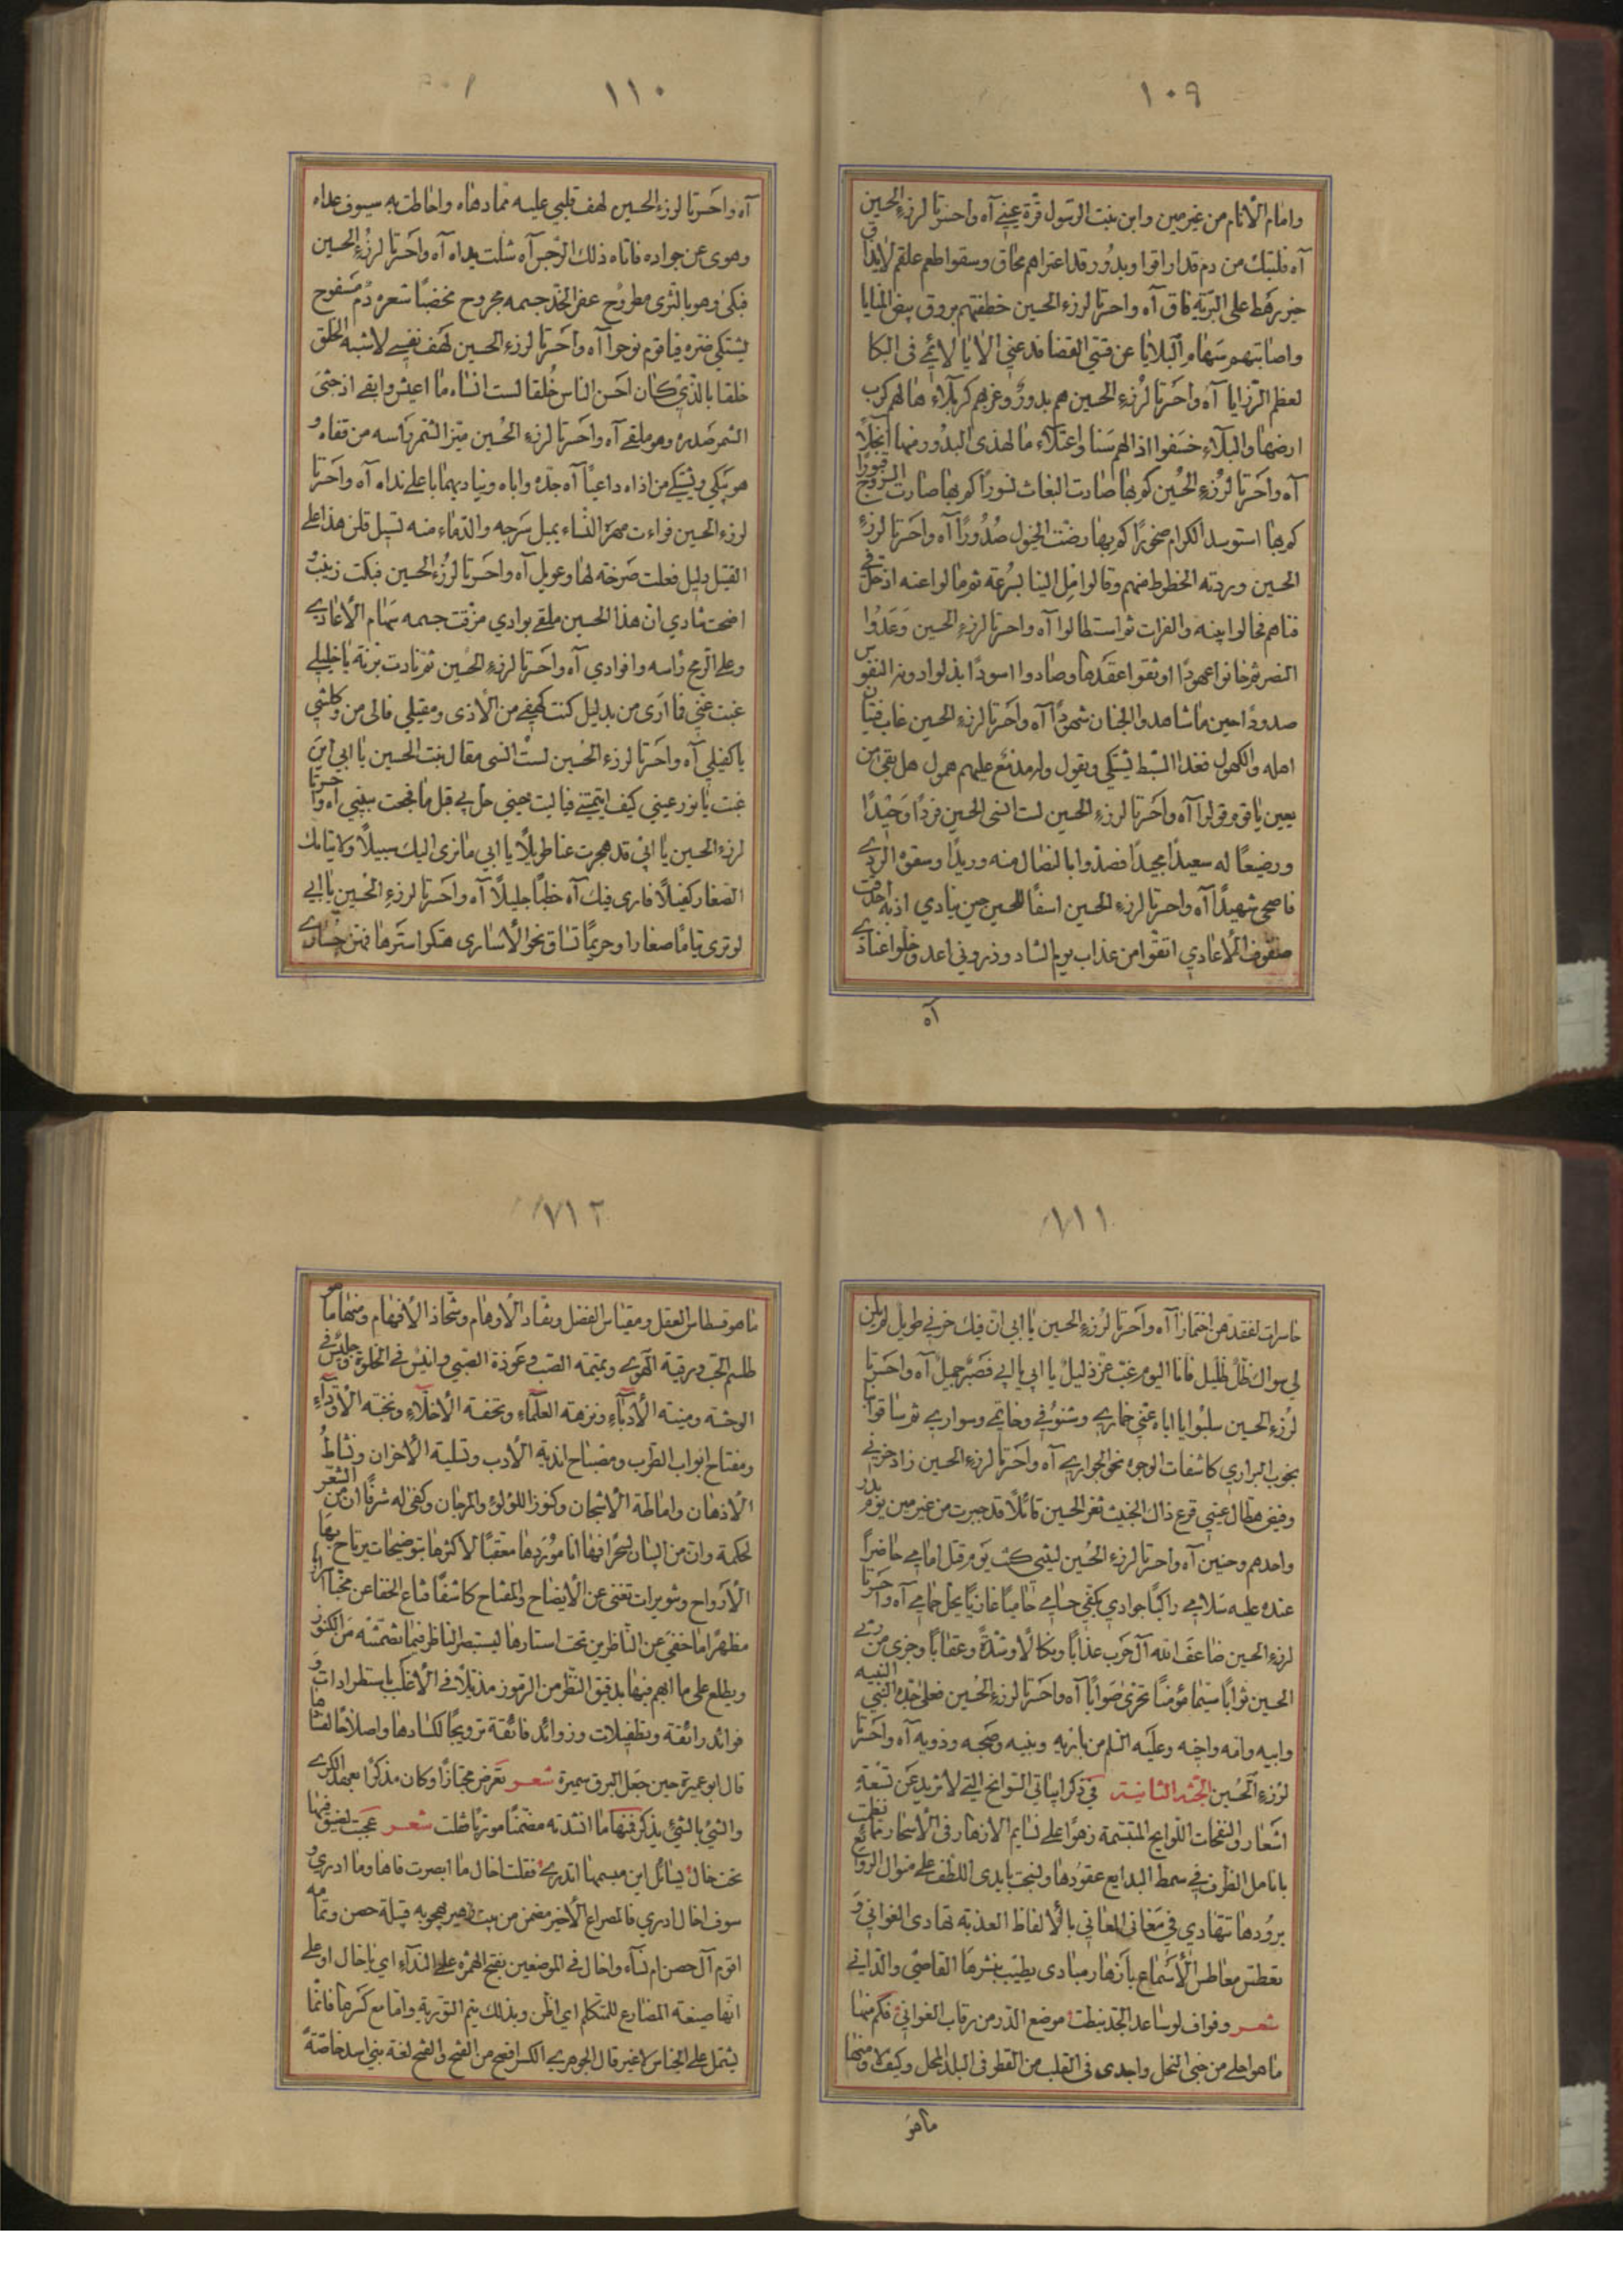 ١٠٩
وامام الأنام من غير مين وابن بنت الرسول قرة عيني آه واحسرتا لرزء الحسين
آه فلتبك من دم قد اراقوا وبدور قد اعتراهم محاق وسقوا طعم علقم لايذاق
خير رهط على البرية فاق آه واحسرتا لرزء الحسين خطفتهم بروق بيض المنايا
واصابتهم سهام البلايا عن قسي القضا فدعني الايا لائمي في البكا
لعظم الرزايا آه واحسرتا لرزء الحسين هم بدور وغربهم كربلاء هالهم كرب
ارضها والبلاء خسفوا اذ الهم سنا واعتلاء ما لهذى البدور منها انجلا
آه واحسرتا لرزء الحسين كم بها صادت البغاث نسورا كم بها صارت البروج قبورا
كم بها استوسد الكرام صخورا كم بها رضت الخيول صدورا آه واحسرتا لرزء
الحسين وردته الخطوط منهم وقالوا مل الينا بسرعة ثم مالوا عنه اذ حل في
فناهم فحالوا بينه والفرات ثم استطالوا آه واحسرتا لرزء الحسين وعدوا
النصر ثم خانوا عهودا اوثقوا عقدها وصادوا اسودا بذلوا دونه النفوس
صدودا حين ما شاهدوا الجنان شهودا آه واحسرتا لرزء الحسين غاب فتيان
اهله والكهول فغدا السبط يشتكي ويقول ولد مدمع عليهم همول هل بقي من
يعين يا قوم قولوا آه واحسرتا لرزء الحسين لست انسى الحسين فردا وحيدا
ورضيعا له سعيدا مجيدا فصدوا بالنصال منه وريدا وسقوه الردى
فاضحى شهيدا آه واحسرتا لرزء الحسين اسفا للحسين حين ينادي اذ به احدقت
صفوف الأعادي اتقوا من عذاب يوم التناد وذروني اعد وخلوا عنادي
آه
١١٠
آه واحسرتا لرزء الحسين لهف قلبي عليه مما دهاه واحاطت به سيوف عداه
وهوى عن جواده فاتاه ذلك الرجس آه شلت يداه آه واحسرتا لرزء الحسين
فبكى وهو بالثرى مطروح عفر الخد جسمه مجروح مخضبا شعره دم مسفوح
يشتكي ضره فيا قوم نوحوا آه واحسرتا لرزء الحسين لهف نفسي لاشبه الخلق
خلقا بالذي كان احسن الناس خلقا لست انساه ما اعيش وابقى اذ جثى
الشمر صدره وهو ملقى آه واحسرتا لرزء الحسين ميز الشمر راسه من قفاه و
هو يبكي ويشتكي من اذاه داعيا آه جده واباه وينادبهما باعلى نداه آه واحسرتا
لرزء الحسين فراءت مهره النساء يميل سرجه والدماء منه تسيل قلن هذا على
القتيل دليل فعلت صرخة لها وعويل آه واحسرتا لرزء الحسين فبكت زينب و
اضحت تنادي ان هذا الحسين ملقى بوادي مزقت جسمه سهام الأعادي
وعلى الرمح راسه وافوادي آه واحسرتا لرزء الحسين ثم نادت بزينة يا خليلي
غبت عني فما ارى من بديل كنت كهفي من الأذى ومقيلي فالى من وكلتني
يا كفيلي آه واحسرتا لرزء الحسين لست انسى مقال بنت الحسين يا ابي اين
غبت يا نور عيني كيف ايتمتني فيا ليت حيني حل بي قبل ما فجعت ببيني آه واحسرتا
لرزء الحسين يا ابي قد هجرت عنا طويلا يا ابي ما نرى اليك سبيلا ولايتامك
الصغار كفيلا فارى فيك آه خطبا جليلا آه واحسرتا لرزء الحسين يا ابي
لو ترى يتاما صغارا وحريما تساق نحو الأسارى هتكوا سترها فهن حسارى
١١١
خاسرات لفقدهن اختمارا آه واحسرتا لرزء الحسين يا ابي ان فيك حزني طويل لم يكن
لي سواك ظل ظليل فانا اليوم غبت عز ذليل يا ابي يا ابي فصبر جميل آه واحسرتا
لرزء الحسين سلبوا يا اباه عني خماري وشنوفي وخاتمي وسواري ثم ساقوا بنا
بجوب البراري كاشفات الوجوه نحو الجواري آه واحسرتا لرزء الحسين زاد حزني
وفيض هطال عيني قرع ذاك الخبيث ثغر الحسين قائلا قد جبرت من غير مين يوم بدر
واحدهم وحنين آه واحسرتا لرزء الحسين ليتني كنت يوم قتل امامي حاضرا
عنده عليه سلامي راكبا جوادي بكفي حسامي حاميا غازيا يحل حمامي آه واحسرتا
لرزء الحسين ضاعف الله آل حرب عذابا ونكالا وشدة وعقابا وجزى من رثى
الحسين ثوابا سيما مؤمنا تحرى صوابا آه واحسرتا لرزء الحسين فعلى جده النبي النبيه
وابيه وامه واخيه وعليه السلم من باريه وبنيه وصحبه وذويه آه واحسرتا
لرزء الحسين الجثة الثانية في ذكر ابياتي السوانح التي لا تزيد عن تسعة
اشعار والنفحات اللوايح المتبسمة زهرا على نسايم الازهار في الأسحار مما نظمت
بانامل الظرف في سمط البدايع عقودها ونسجت بايدي اللطف على منوال الروائع
برودها تتهادي في مغاني المعاني بالألفاظ العذبة تهادى الغواني و
تعطس معاطس الأسماع بازهار مبادى يطيب بنشرها القاصي والداني
شعر وقواف لو ساعد الجد نيطت موضع الدر من رقاب الغواني فكم منها
ما هو احلى من جنى النحل واجدى في القلب من القطر في البلد المحل وكيف لا ومنها
ما هو
٧١٢
ما هو قسطاس العقل ومقياس الفضل ونقاد الأوهام وشحاذ الأفهام ومنها ما هو
طلسم الحب ورقية الهوى وتميمة الصب وعوذة الصبي وانيس في الخلوة وجليس في
الوحشة ومنية الأدباء ونزهة العلماء وتحفة الأخلاء ونخبة الأوداء
ومفتاح ابواب الطرب ومصباح اندية الأدب وتسلية الأحزان ونشاط
الأذهان واماطة الأشجان وكنوز اللؤلؤ والمرجان وكفى له شرفا ان من الشعر
لحكمة وان من البيان لسحرا فها انا موردها معقبا لاكثرها بتوضيحات يرتاح بها
الأرواح وتنويرات تغنى عن الأيضاح والمفتاح كاشفا قناع الخفا عن مخبأ
مظهرا ما خفي عن الناظرين تحت استارها ليستبصر الناظر فيما تضمنته من الكنوز
ويطلع على ما ابهم فيها بدقيق النظر من الرموز مذيلا في الأغلب باستطرادات و
فوائد رائقة وتطفيلات وزوائد فائقة ترويجا لكسادها واصلاحا لفسادها
قال ابو عميرة حين جعل البرق سميره شعر تعرض مجتازا وكان مذكرا بعهد الكرى
والشيئ بالشيئ يذكر فمنها ما انشدته مضمنا موريا فقلت شعر عجبت لضيق فيها
تحت خال يسائل اين مبسمها اتدري فقلت اخال ما ابصرت فاها وما ادري و
سوف اخال ادري فالمصراع الأخير مضمن من بيت زهير يهجو به قبيلة حصن وتمامه
اقوم آل حصن ام نساء واخال في الموضعين بفتح الهمزة على النداء اي يا خال او على
انها صيغة المضارع للمتكلم اي اظن وبذلك يتم التورية واما مع كسرها فانما
يشتمل على الجناس لا غير قال الجوهري الكسر افصح من الفتح والفتح لغة بني اسد خاصة